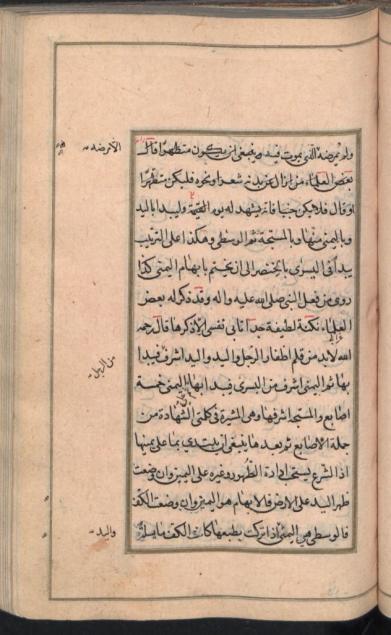 ولو مرضه الذى يموت فيه وينبغى ان يكون متطهرا قال
بعض العلماء من ازال عن بدنه شعرا ونحوه فليكن متطهرا
او قال فلا يكن جنبا فانه يشهد له يوم القيمة وليبدا باليد
وباليمنى منها وبالمسبحة ثم الوسطى وهكذا على الترتيب
يبدأ فى اليسرى بالخنصر الى ان يختم بابهام اليمنى كذا
روى من فعل النبى صلى الله عليه واله وقد ذكر له بعض
العلماء نكتة لطيفة جدا تابى نفسى الا ذكرها قال رحمه
الله لا بد من قلم اظفار الرجل واليد واليد اشرف فيبدا
بها ثم اليمنى اشرف من اليسرى فيبدا بها اليمنى خمسة
اصابع والمسبحة اشرفها وهى المشيرة فى كلمتى الشهادة من
جملة الاصابع ثم بعدها ينبغى ان يبتدى بما على يمينها
اذا الشرع يستحب ادارة الطهور وغيره على اليمين وان وضعت
ظهر اليد على الارض فالابهام هو اليمين وان وضعت الكف
فالوسطى هى اليمنى اذا تركت بطبعها كان الكف مايلة
من الرجل
واليد